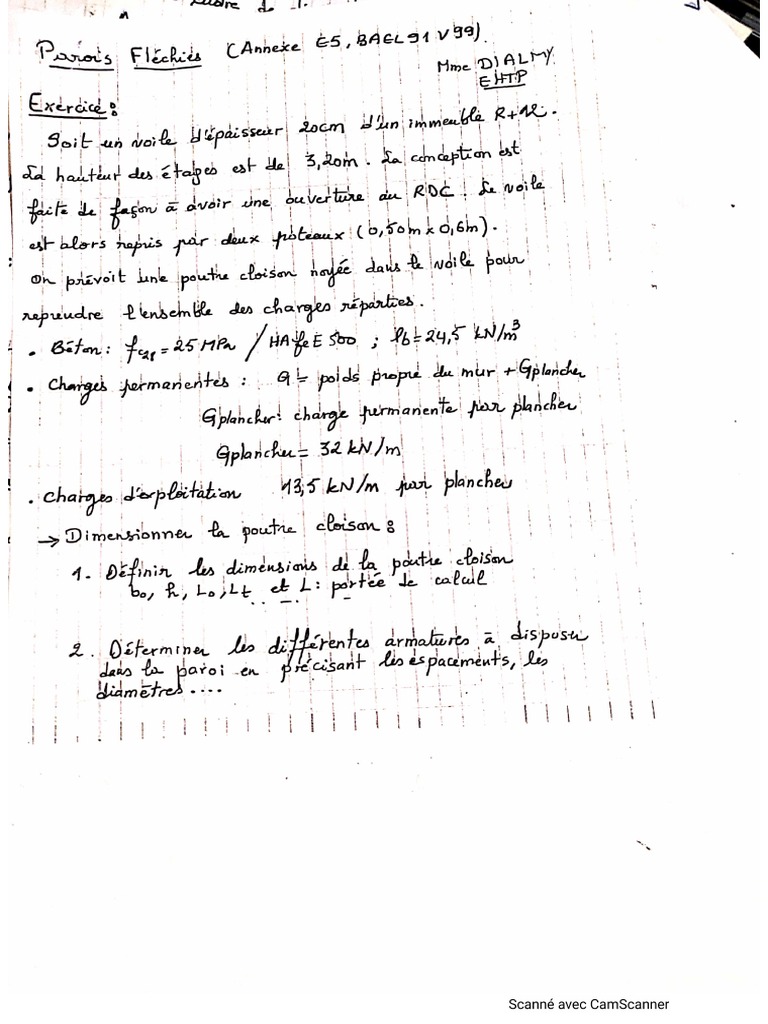 de
Parois Fléchies (Annexe E5, BAEL91 V99)
Mme DIALMY
EHTP
Exercice:
Soit un voile d'épaisseur 20cm d'un immeuble R+12.
La hauteur des étages est de 3,20m. La conception est
faite de façon à avoir une ouverture au RDC. Le voile
est alors repris par deux poteaux (0,50m x 0,6m).
On prévoit une poutre cloison noyée dans le voile pour
reprendre l'ensemble des charges réparties.
• Béton: fc28 = 25 MPa / HA feE 500 ; ρb = 24,5 kN/m³
• Charges permanentes : G = poids propre du mur + Gplancher
Gplancher: charge permanente par plancher
Gplancher = 32 kN/m
• Charges d'exploitation 13,5 kN/m par plancher
→ Dimensionner la poutre cloison :
1. Définir les dimensions de la poutre cloison
b0, h, L0, Lt et L : portée de calcul
2. Déterminer les différentes armatures à disposer
dans la paroi en précisant les espacements, les
diamètres....
Scanné avec CamScanner